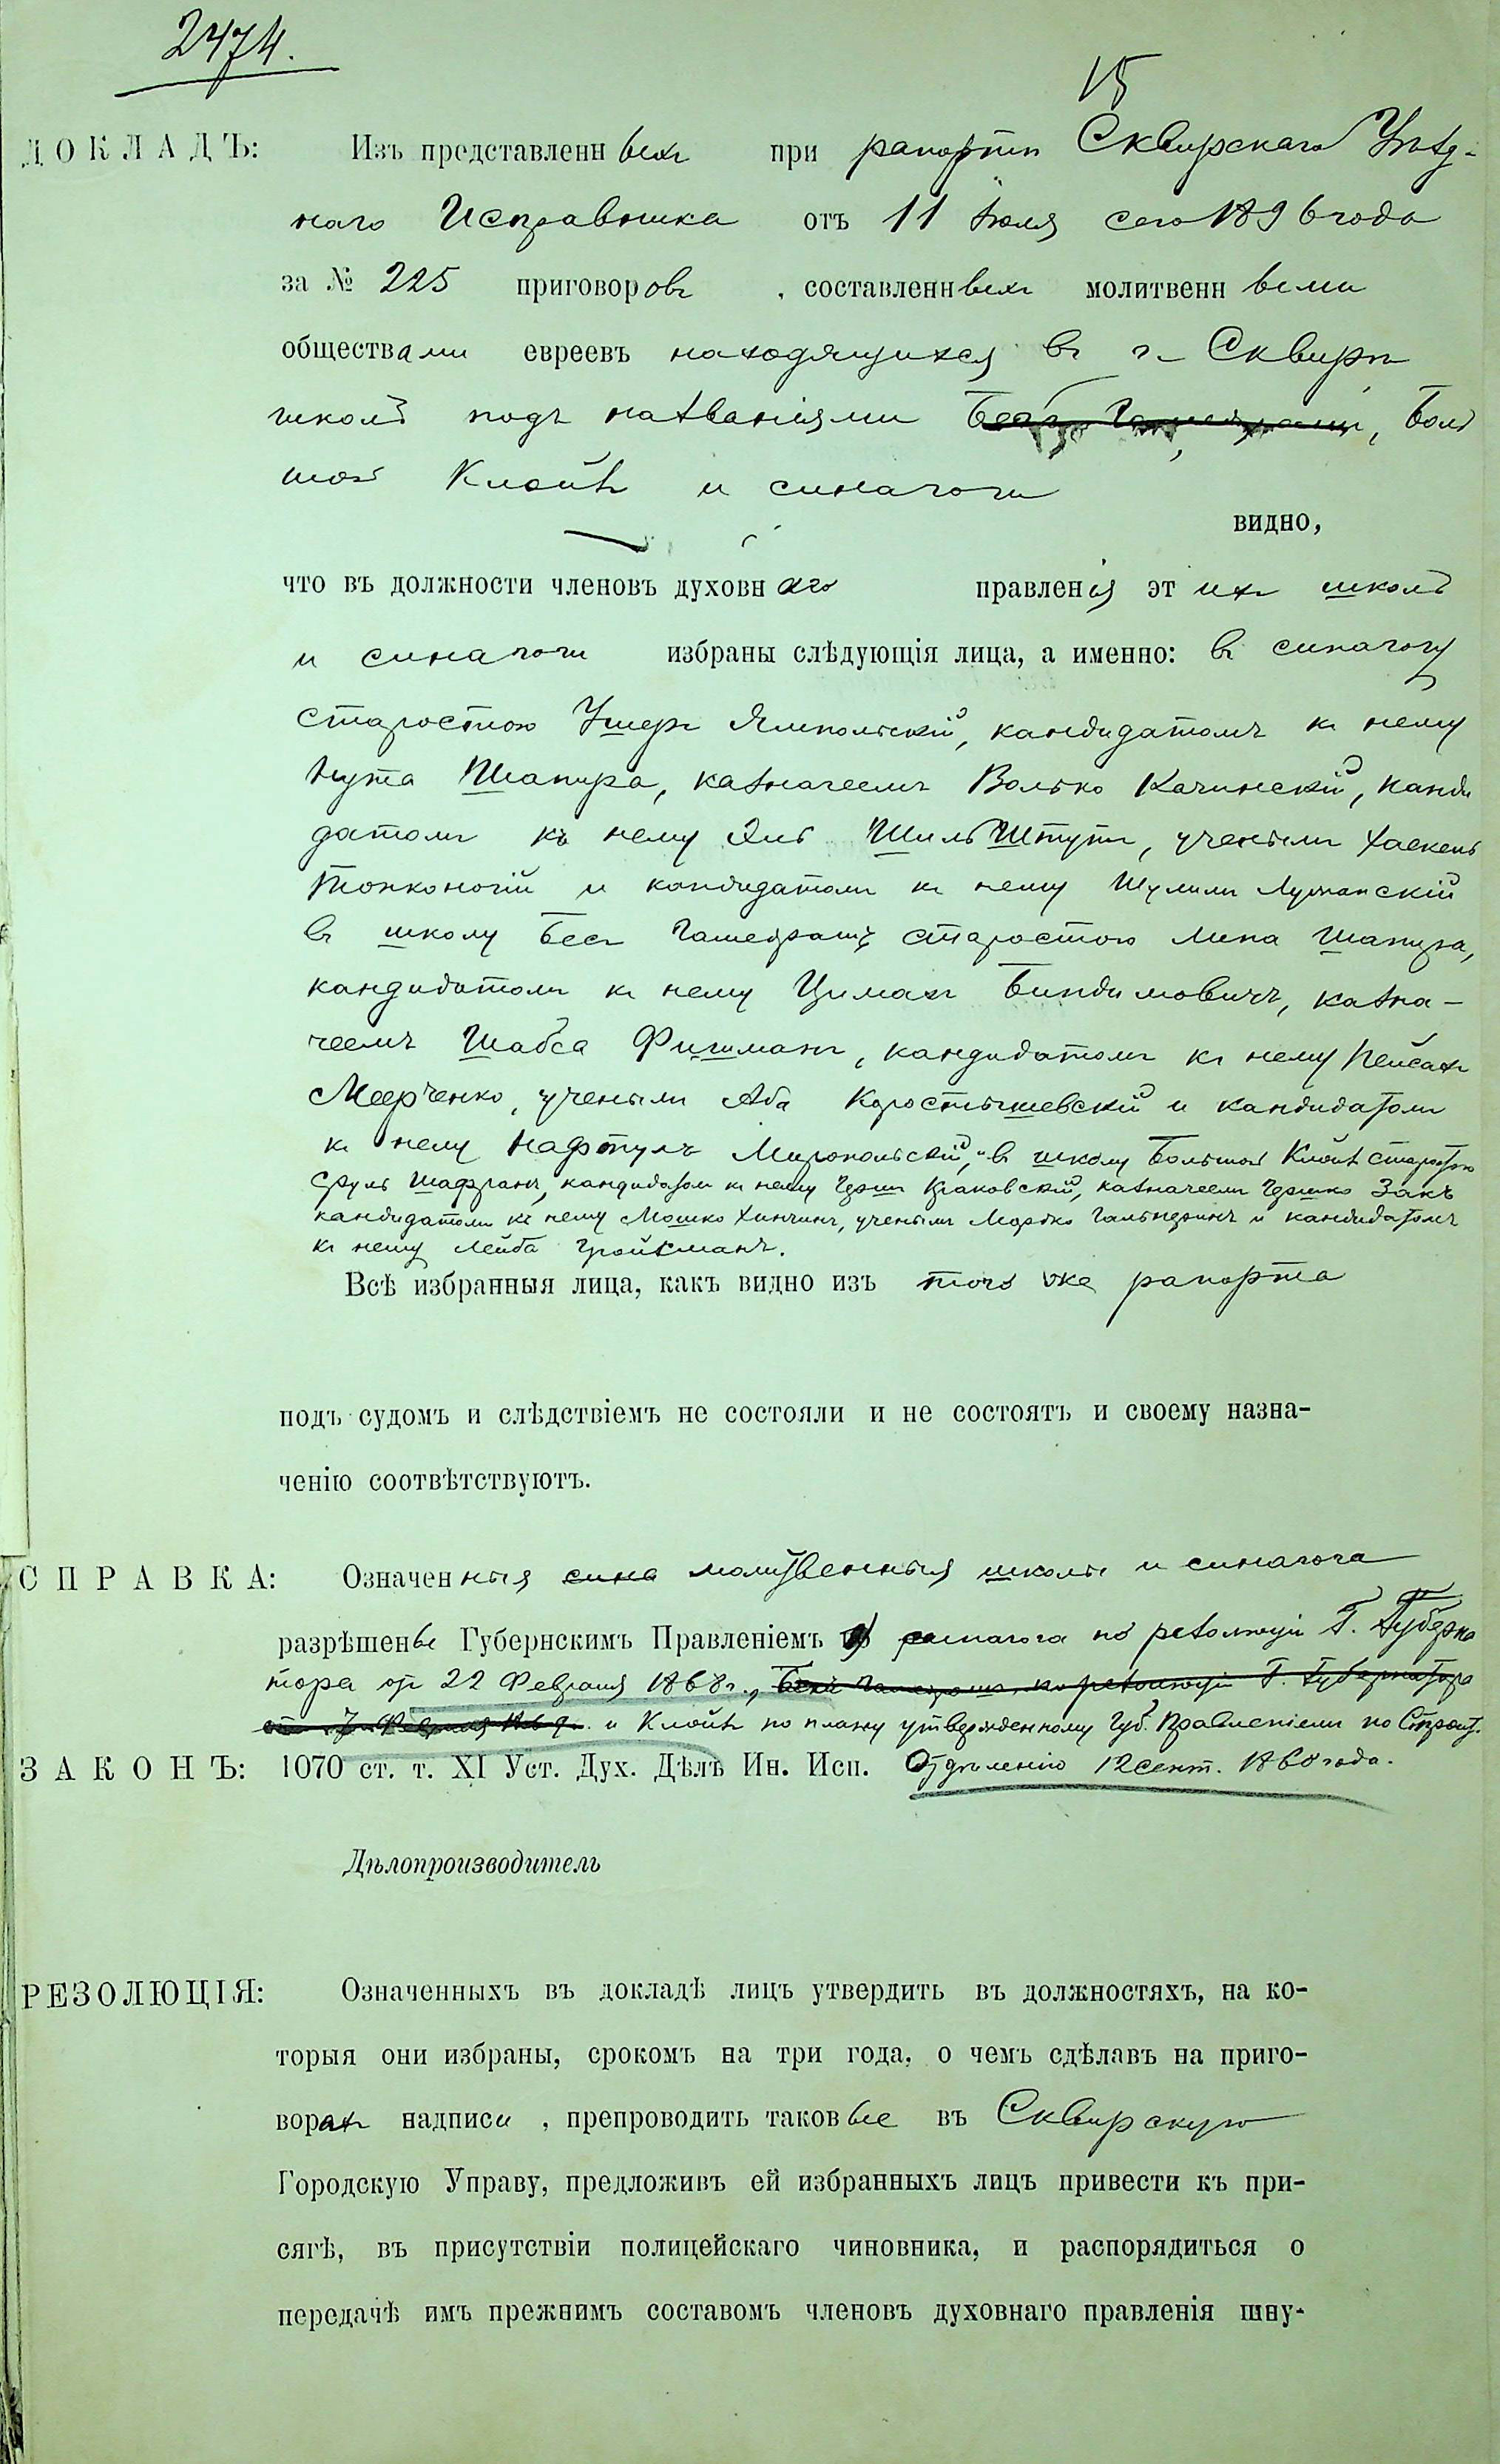 2474.
15
ДОКЛАДЪ: Изъ представленныхъ при рапортѣ Сквирскаго Уѣзд-
наго Исправника отъ 11 Іюля сего 1896 года
за № 225 приговоровъ, составленныхъ молитвенными
обществами евреевъ находящихся въ г. Сквирѣ
школъ подъ названіями Бесъ Гамедрашъ, Боль
шой Клойзъ и синагоги
видно,
что въ должности членовъ духовнаго правленія этихъ школъ
и синагоги избраны слѣдующія лица, а именно: въ синагогу
старостою Ушеръ Ямпольскій, кандидатомъ къ нему
Нута Шапира, казначеемъ Волько Качинскій, канди
датомъ къ нему Эль Шильштутъ, ученымъ Хаскель
Тонконогій и кандидатомъ къ нему Шулимъ Луганскій
въ школу Бесъ Гамедрашъ старостою Липа Шапира,
кандидатомъ къ нему Цимахъ Биндимовичъ, казна-
чеемъ Шабса Фишманъ, кандидатомъ къ нему Пейсахъ
Меерченко, ученымъ Аба Коростышевскій и кандидатомъ
къ нему Нафтулъ Миропольскій, въ школу Большой Клойзъ старостою
Сруль Шафранъ, кандидатомъ къ нему Герш Краковскій, казначеемъ Гершко Закъ
кандидатомъ къ нему Мошко Хинчинъ, ученымъ Мордко Гальперинъ и кандидатомъ
къ нему Лейба Гройсманъ.
Всѣ избранныя лица, какъ видно изъ того же рапорта
подъ судомъ и слѣдствіемъ не состояли и не состоятъ и своему назна-
ченію соотвѣтствуютъ.
СПРАВКА: Означенныя сина молитвенныя школы и синагога
разрѣшены Губернскимъ Правленіемъ синагога по резолюціи Г. Губерна
тора отъ 22 Февраля 1868 г., Бесъ Гамедрашъ по резолюціи Г. Губернатора
и Клойзъ по плану утвержденному Губ. Правленіемъ по Строит.
ЗАКОНЪ: 1070 ст. т. XI Уст. Дух. Дѣлъ Ин. Исп. Отдѣленію 12 сент. 1868 года.
Дѣлопроизводитель
РЕЗОЛЮЦІЯ: Означенныхъ въ докладѣ лицъ утвердить въ должностяхъ, на ко-
торыя они избраны, срокомъ на три года, о чемъ сдѣлавъ на приго-
ворахъ надписи, препроводить таковые въ Сквирскую
Городскую Управу, предложивъ ей избранныхъ лицъ привести къ при-
сягѣ, въ присутствіи полицейскаго чиновника, и распорядиться о
передачѣ имъ прежнимъ составомъ членовъ духовнаго правленія шну-